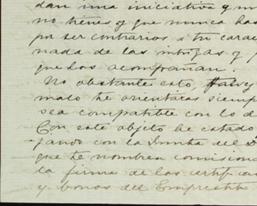 dan una iniciativa y un
no tienes y que nunca has
por ser contrarios á tu carác
nada de las intrigas y
que los acompañan.
No obstante esto, 
malo te orientas siempre
sea compatible con lo d
Con este objeto he estado
jando con la Junta del
que te nombren comision
la firma de los certific
y bonos del Empréstito